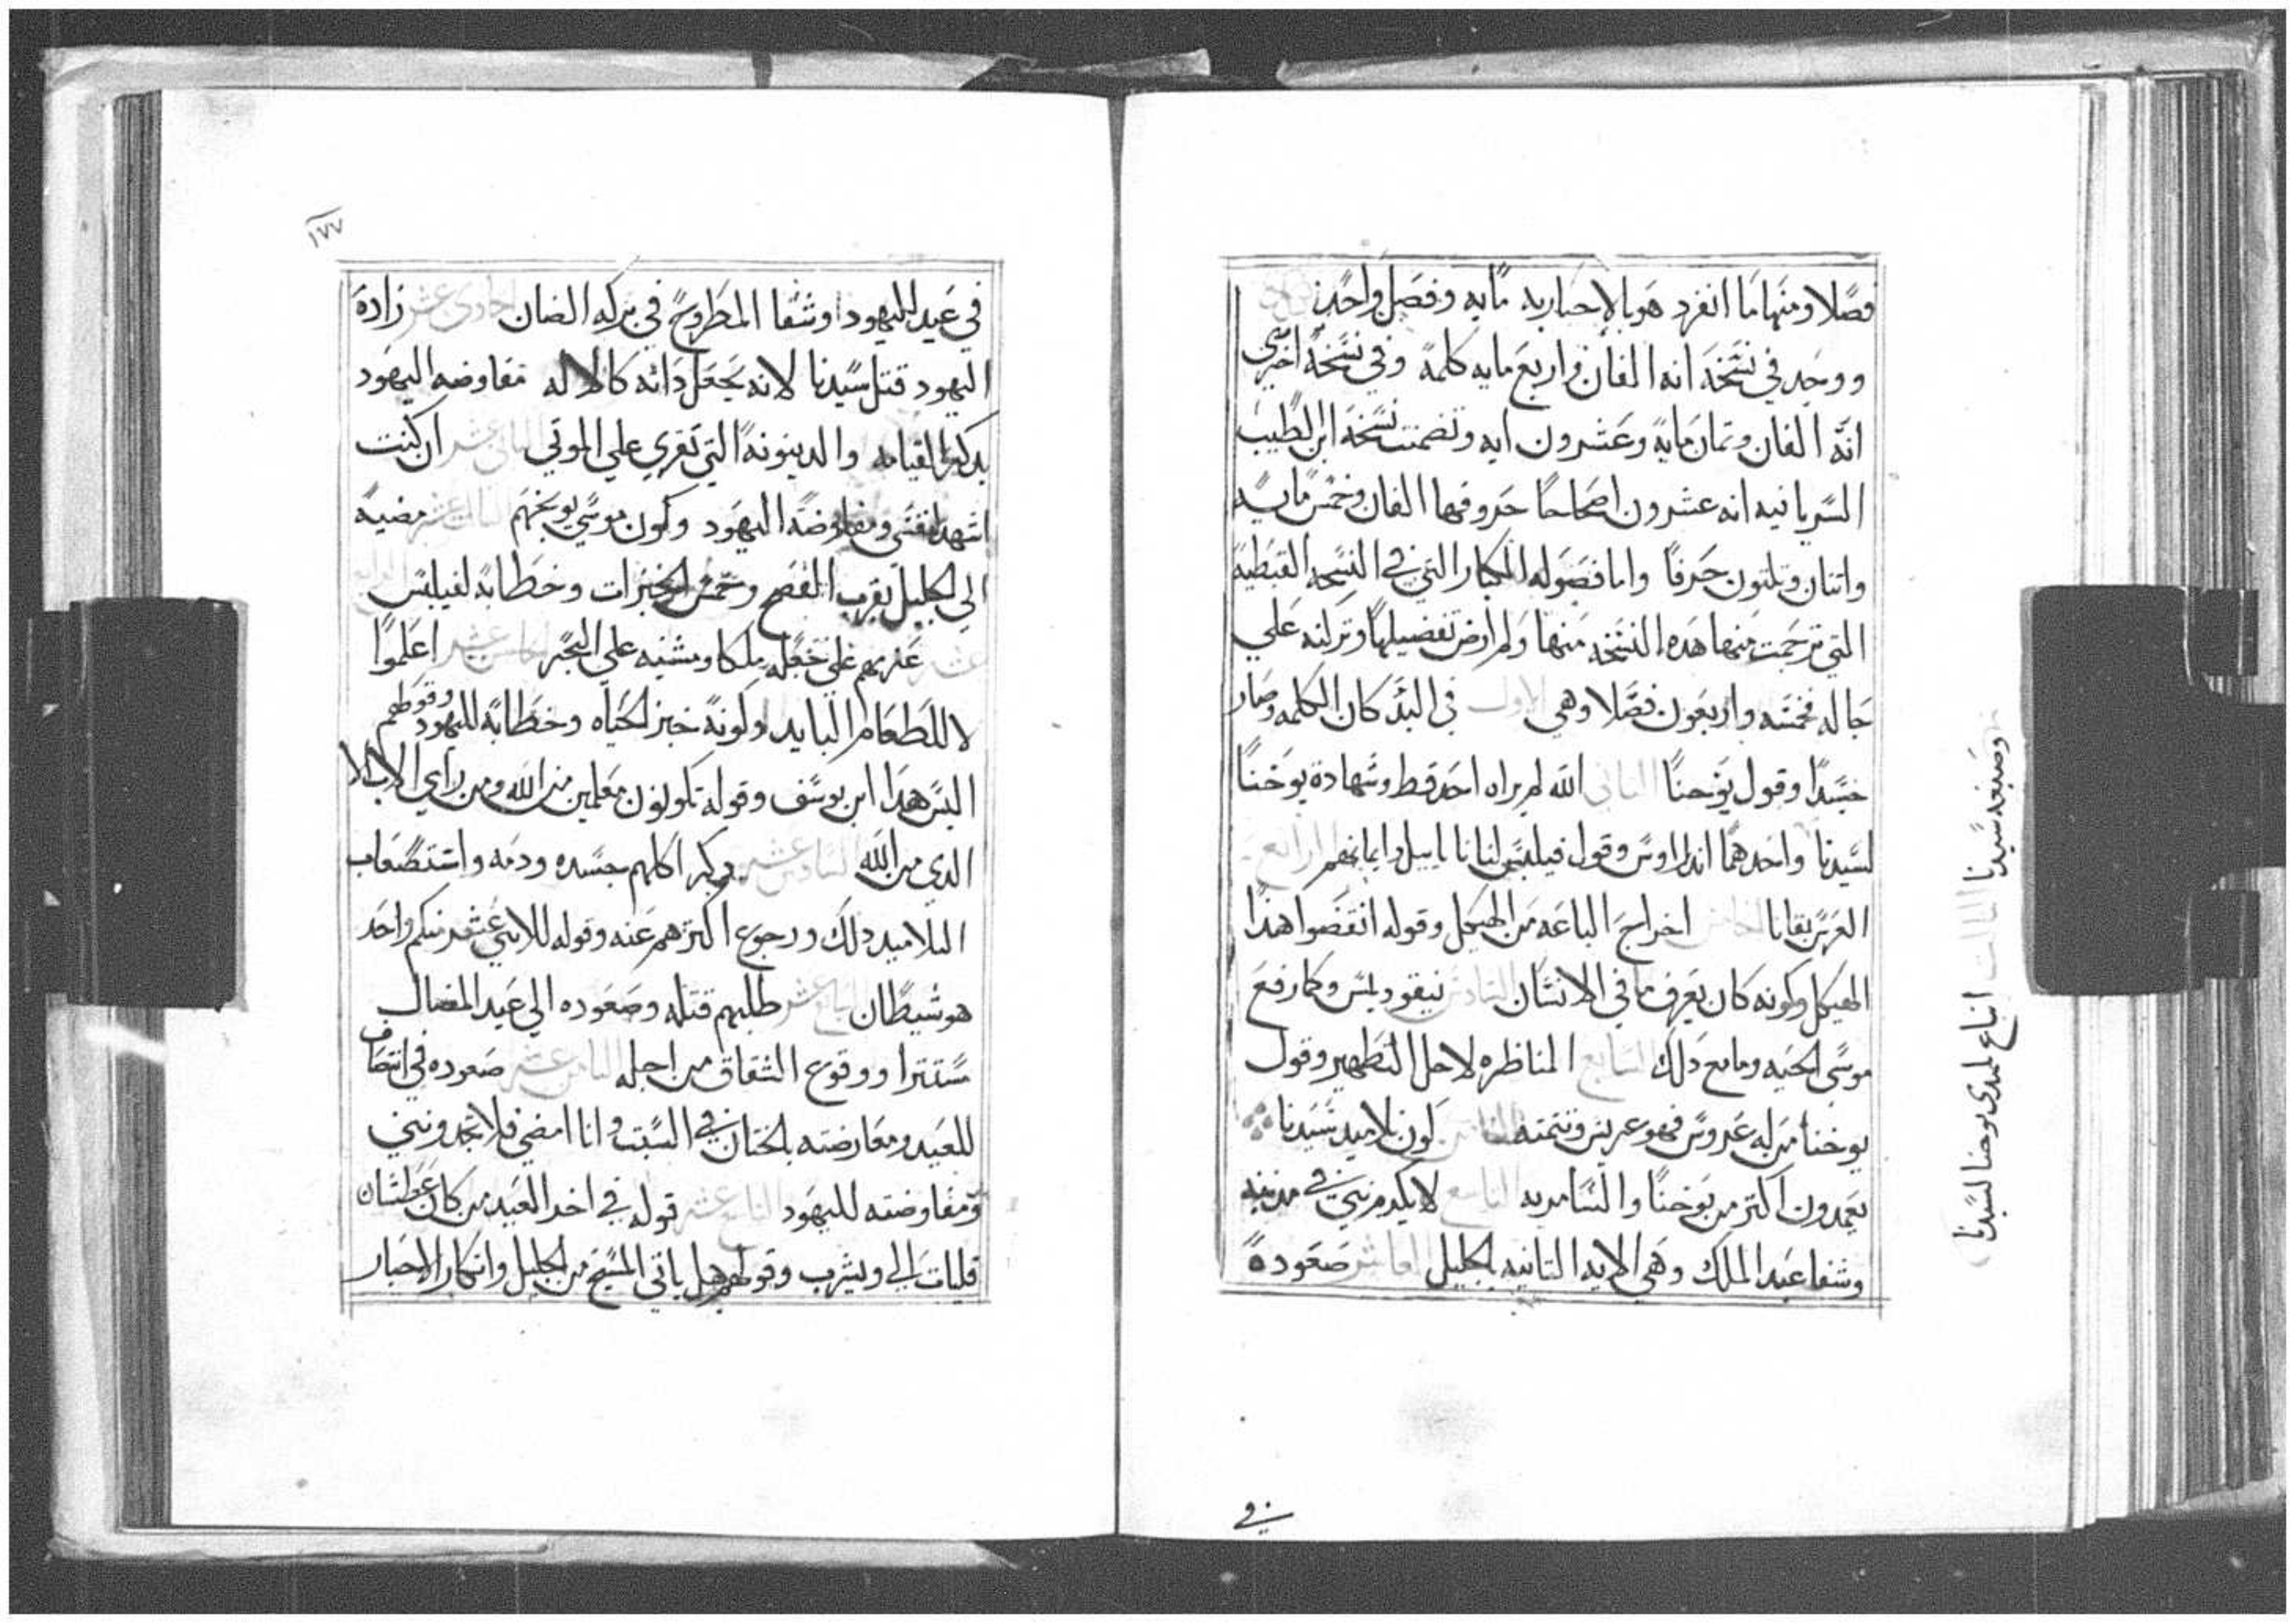 فصلا ومنها ما انفرد هو بالاخبار به مايه وفصل واحد
ووجد في نسخة انه الفان واربع مايه كلمة وفي نسخة اخري
انه الفان وتمان ماية وعشرون ايه وتضمنت نسخة ابن الطيب
السريانيه انه عشرون اصحاحا حروفها الفان وخمس مايه
واتنان وتلتون حرفا واما فصوله الكبار التي في النسخه القبطية
التي ترجمت منها هده النسخه منها ولم ارض تفصيلها وتركته علي
حاله فخمسه واربعون فصلا وهي الاول في البد كان الكلمه وصار
جسدا وقول يوحنا الثاني الله لم يراه احد قط وشهادة يوحنا
لسيدنا واحدهما اندراوس وقول فيلبس لناتانايل وايمانهم الرابع
العرس بقانا الخامس اخراج الباعه من الهيكل وقوله انقضوا هدا
الهيكل وكونه كان يعرف ما في الانسان السادس نيقوديمس وكما رفع
موسي الحيه وما مع دلك السابع المناظره لاجل التطهير وقول
يوحنا من له عروس فهو عريس وتتمته الثامن كون تلاميد سيدنا
يعمدون اكتر من يوحنا والسامريه التاسع لا يكرم نبي في مدينته
وشفا عبد الملك وهي الايه التانيه بالجليل العاشر صعوده
وصبغه سيدنا الثالث اتباع تلميدي يوحنا لسيدنا
في
١٧٧
في عيد لليهود وشفا المطروح في بركه الضان حادي عشر زادة
اليهود قتل سيدنا لانه يجعل داته كالاله مفاوضه اليهود
بدكر القيامه والدينونة التي تقري علي الموتي الثاني عشر ان كنت
اشهد لنفسي ومفاوضة اليهود وكون موسي يوبخهم الثالث عشر مضيه
الي الجليل بقرب الفصح وخمس الخبزات وخطابة لفيلبس الرابع
عشر عزمهم علي جعله ملكا ومشيه علي البحر الخامس عشر اعلموا
لا للطعام البايد وكونه خبز الحياه وخطابة لليهود وقولهم
اليس هدا ابن يوسف وقوله تكونون معلمين من الله ومن راي الاب الا
الدي من الله السادس عشر دكر اكلهم جسده ودمه واستصعاب
التلاميد دلك ورجوع اكترهم عنه وقوله للاتني عشر منكم واحد
هو شيطان السابع عشر طلبهم قتله وصعوده الي عيد المضال
مستترا ووقوع الشقاق من اجله الثامن عشر صعوده في انتصاف
للعيد ومعارضته بالختان في السبت وانا امضي فلا تجدونني
ومفاوضته لليهود التاسع عشر قوله في اخر العيد من كان عطشان
فليات الي ويشرب وقولهم هل ياتي المسيح من الجليل وانكار الاحبار